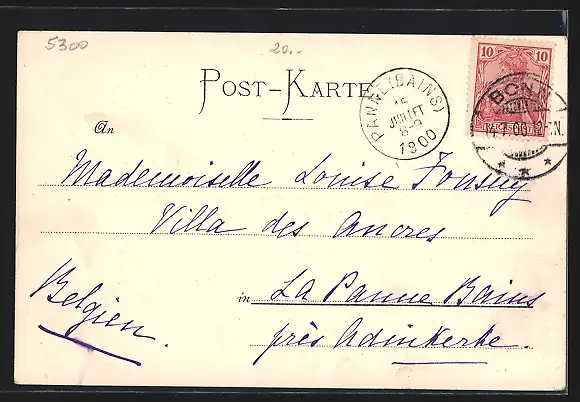 5300
20.-
POST-KARTE
PANNE (BAINS)
15
JUILLET
8-9
1900
10
10
BONN
14.7.00.12-1N.
An
Mademoiselle Louise
Villa des Ancres
Belgien.
in La Panne Bains
près Adinkerke.